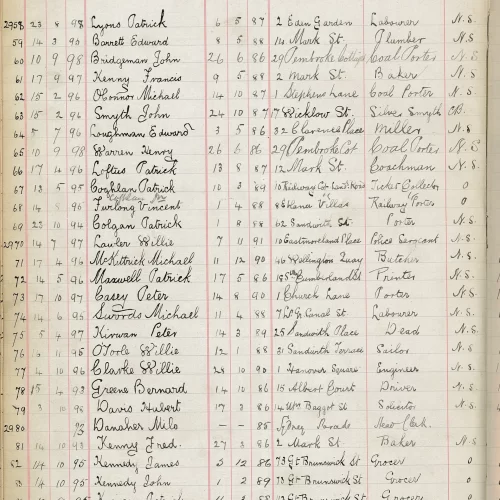 2958 23 8 98 Lyons Patrick 6 5 87 2 Eden Garden Labourer N.S
59 14 3 90 Barrett Edward 8 5 88 14 Mark St. Plumber N.S
60 10 9 98 Bridgeman John 26 6 86 29 Pembroke Cottages Coal Porter N.S
61 17 9 97 Kenny Francis 9 5 88 2 Mark St. Baker N.S
62 15 2 96 O'Connor Michael 14 10 87 1 Stephens Lane Coal Porter N.S
63 15 2 96 Smyth John 24 10 87 17 Wicklow St. Silver Smyth CB.
64 5 7 96 Loughman Edward 3 5 86 32 Clarence Place Miller N.S
65 10 9 98 Warren Henry 26 6 86 29 Pembroke Cot Coal Porter N.S.
66 17 4 96 Loftus Patrick 13 8 87 12 Mark St. Coachman N.S
67 13 5 95 Coghlan Patrick 10 3 89 10 Railway Cot Ticket Collector O
68 14 8 96 Furlong Vincent 1 4 88 86 Villas Railway Porter O
69 23 10 94 Colgan Patrick 1 8 88 62 Sandwith St. Porter N.S
2970 14 7 97 Lawler Willie 7 11 91 10 Eastmoreland Place Police Sergeant N.S.
71 17 4 96 McKittrick Michael 11 12 90 46 Wellington Quay Butcher N.S
72 14 5 96 Maxwell Patrick 17 5 86 Cumberland St Printer N.S
73 17 10 97 Casey Peter 14 8 90 1 Church Lane Porter N.S
74 14 9 95 Swords Michael 11 4 88 Canal St. Labourer N.S.
75 5 4 97 Kirwan Peter 14 3 89 25 Sandwith Place Dead N.S.
76 16 11 95 O'Toole Willie 12 1 88 31 Sandwith Terrace Sailor N.S
77 4 10 96 Clarke Willie 28 10 90 1 Hanover Square Engineer N.S
78 15 4 93 Greene Bernard 14 10 86 15 Albert Court Driver N.S
79 3 10 98 Davis Hubert 17 3 86 14 Baggot St Solicitor N.S
2980 93 Danaher Milo — — 85 Sydney Parade Head Clerk.
81 14 10 93 Kenny Fred. 27 3 86 2 Mark St Baker N.S
82 14 10 95 Kennedy James 3 12 86 73 Gt Brunswick St. Grocer O
83 14 10 95 Kennedy John 1 2 89 73 Gt Brunswick St Grocer O
Patrick Gt Brunswick St. Grocer